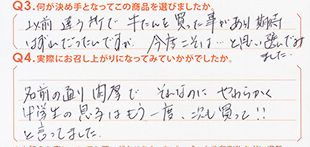 Q3.何が決め手となってこの商品を選びましたか。
以前 違う所で 牛たんを買った事があり 結局
はずれだったいたですが 今度こそは…と思い選んでみ
ました。
Q4.実際にお召し上がりになってみていかがでしたか。
名前の通り肉厚で それなのに やわらかく
中学生の息子はもう一度、次も買って!!
と言ってました。